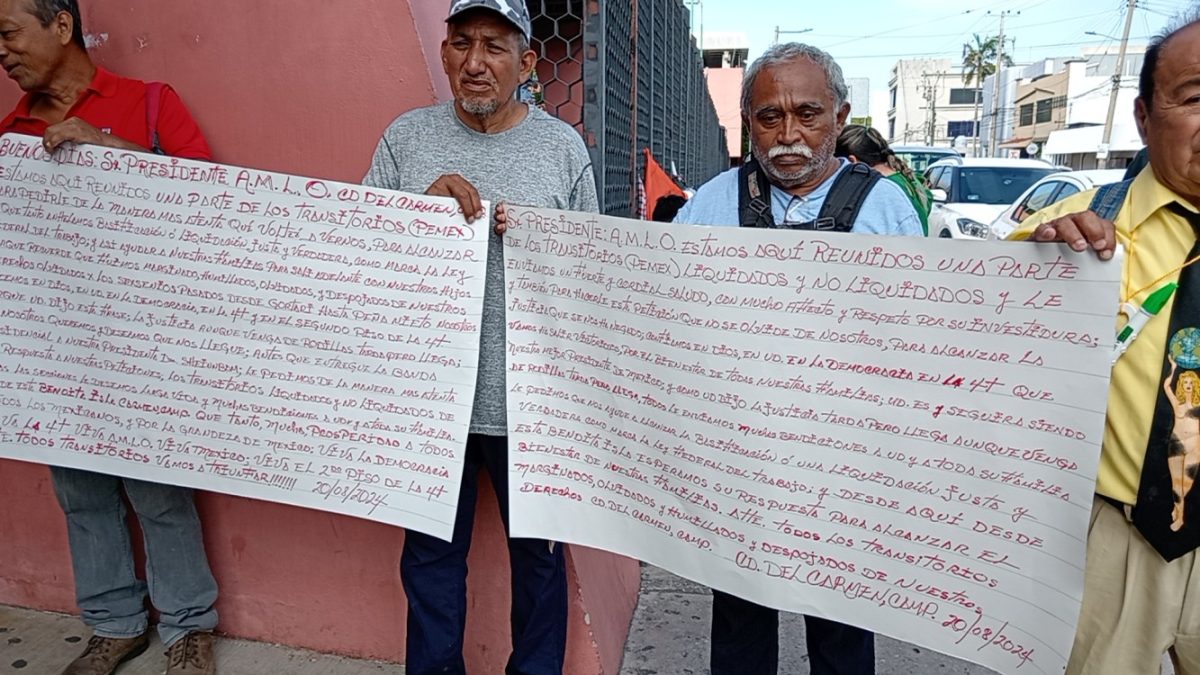 BUENOS DIAS: SR PRESIDENTE A.M.L.O. CD DEL CARMEN,
ESTAMOS AQUI REUNIDOS UNA PARTE DE LOS TRANSITORIOS (PEMEX)
PARA PEDIRLE DE LA MANERA MAS ATENTA QUE VOLTEE A VERNOS, PARA ALCANZAR
QUE TANTO ANHELAMOS BASIFICACIÓN Ó LIQUIDACIÓN JUSTA Y VERDADERA, COMO MARCA LA LEY
FEDERAL DEL TRABAJO, Y ASI AYUDAR A NUESTRAS FAMILIAS PARA SALIR ADELANTE CON NUESTROS HIJOS
RECUERDE QUE FUIMOS MARGINADOS, HUMILLADOS, OLVIDADOS, Y DESPOJADOS DE NUESTROS
DERECHOS OLVIDADOS X LOS SEXSENIOS PASADOS DESDE GORTARI HASTA PEÑA NIETO NOSOTROS
EN DIOS, EN UD. EN LA DEMOCRACIA, EN LA 4T Y EN EL SEGUNDO PISO DE LA 4T
UD. DIJO ESTA FRASE: LA JUSTICIA AUNQUE VENGA DE RODILLAS TARDA PERO LLEGA;
NOSOTROS QUEREMOS Y DESEAMOS QUE NOS LLEGUE; ANTES QUE ENTREGUE LA BANDA
A NUESTRA PRESIDENTA DRA. SHEINNBAM, LE PEDIMOS DE LA MANERA MAS ATENTA
RESPUESTA A NUESTRAS PETICIONES, LOS TRANSITORIOS LIQUIDADOS Y NO LIQUIDADOS DE
LE DESEAMOS LARGA VIDA Y MUCHAS BENDICIONES A UD Y A TODA SU FAMILIA
DE ESTA BENDITA ISLA CARMEN, CAMP. QUE TANTO, MUCHA PROSPERIDAD A TODOS
TODOS LOS MEXICANOS, Y POR LA GRANDEZA DE MEXICO; VIVA LA DEMOCRACIA
VIVA LA 4T VIVA A.M.L.O. VIVA MEXICO; VIVA EL 2DO PISO DE LA 4T
ATTE. TODOS TRANSITORIOS VAMOS A TRIUNFAR!!!!!! 20/08/2024
SR PRESIDENTE: A.M.L.O. ESTAMOS AQUI REUNIDOS UNA PARTE
DE LOS TRANSITORIOS (PEMEX) LIQUIDADOS Y NO LIQUIDADOS Y LE
ENVIAMOS UN FUERTE Y CORDIAL SALUDO, CON MUCHO AFECTO Y RESPETO POR SU INVESTIDURA;
Y TAMBIEN PARA HACERLE ESTA PETICIÓN QUE NO SE OLVIDE DE NOSOTROS, PARA ALCANZAR LA
JUSTICIA QUE SE NOS HA NEGADO; CONFIAMOS EN DIOS, EN UD. EN LA DEMOCRACIA EN LA 4T QUE
VAMOS HA SALIR VICTORIOSOS, POR EL BIENESTAR DE TODAS NUESTRAS FAMILIAS; UD. ES Y SEGUIRA SIENDO
NUESTRO MEJOR PRESIDENTE DE MEXICO; Y COMO UD DIJO LA JUSTICIA TARDA PERO LLEGA AUNQUE VENGA
DE RODILLAS TARDA PERO LLEGA, TODOS LE ENVIAMOS MUCHAS BENDICIONES A UD Y A TODA SU FAMILIA
LE PEDIMOS QUE NOS AYUDE A ALCANZAR LA BASIFICACIÓN Ó UNA LIQUIDACIÓN JUSTA Y
VERDADERA COMO MARCA LA LEY FEDERAL DEL TRABAJO; Y DESDE AQUI DESDE
ESTA BENDITA ISLA ESPERAMOS SU RESPUESTA PARA ALCANZAR EL
BIENESTAR DE NUESTRAS FAMILIAS. ATTE. TODOS LOS TRANSITORIOS
MARGINADOS, OLVIDADOS Y HUMILLADOS Y DESPOJADOS DE NUESTROS
DERECHOS CD. DEL CARMEN, CAMP. CD. DEL CARMEN, CAMP. 20/08/2024